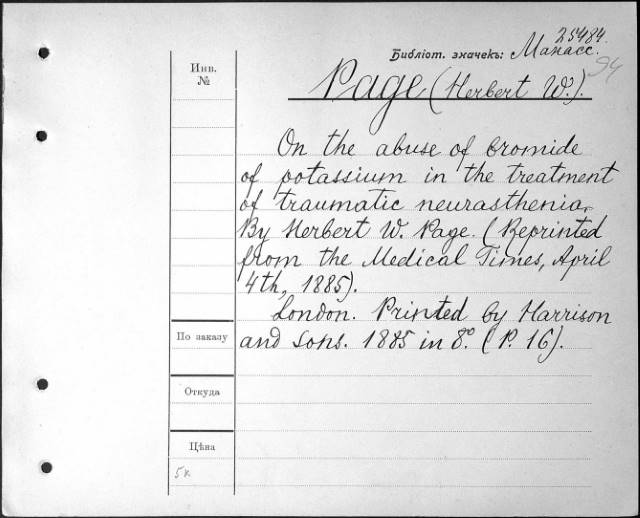 25484.
Библіот. значекъ: Манасс.
94
Инв.
№
Page (Herbert W.).
On the abuse of bromide
of potassium in the treatment
of traumatic neurasthenia.
By Herbert W. Page. (Reprinted
from the Medical Times, April
4th, 1885).
London. Printed by Harrison
and Sons. 1885 in 8°. (P. 16).
По заказу
Откуда
Цѣна
5к